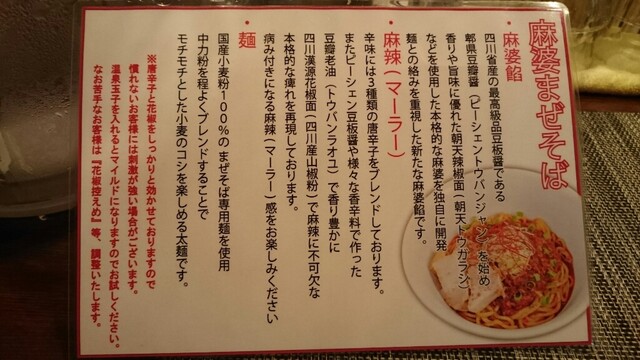 麻婆まぜそば
・麻婆餡
四川省産の最高級品豆板醤である
郫県豆瓣醤（ピーシェントウバンジャン）を始め
香りや旨味に優れた朝天辣椒面（朝天トウガラシ）
などを使用した本格的な麻婆を独自に開発
麺との絡みを重視した新たな麻婆餡です。
・麻辣（マーラー）
辛味には3種類の唐辛子をブレンドしております。
またピーシェン豆板醤や様々な香辛料で作った
豆瓣老油（トウバンラオユ）で香り豊かに
四川漢源花椒面（四川産山椒粉）で麻辣に不可欠な
本格的な痺れを再現しております。
病み付きになる麻辣（マーラー）感をお楽しみください
・麺
国産小麦粉100％のまぜそば専用麺を使用
中力粉を程よくブレンドすることで
モチモチとした小麦のコシを楽しめる太麺です。
※唐辛子と花椒をしっかりと効かせておりますので
慣れないお客様には刺激が強い場合がございます。
温泉玉子を入れるとマイルドになりますのでお試しください。
なお苦手なお客様は『花椒控えめ』等、調整いたします。